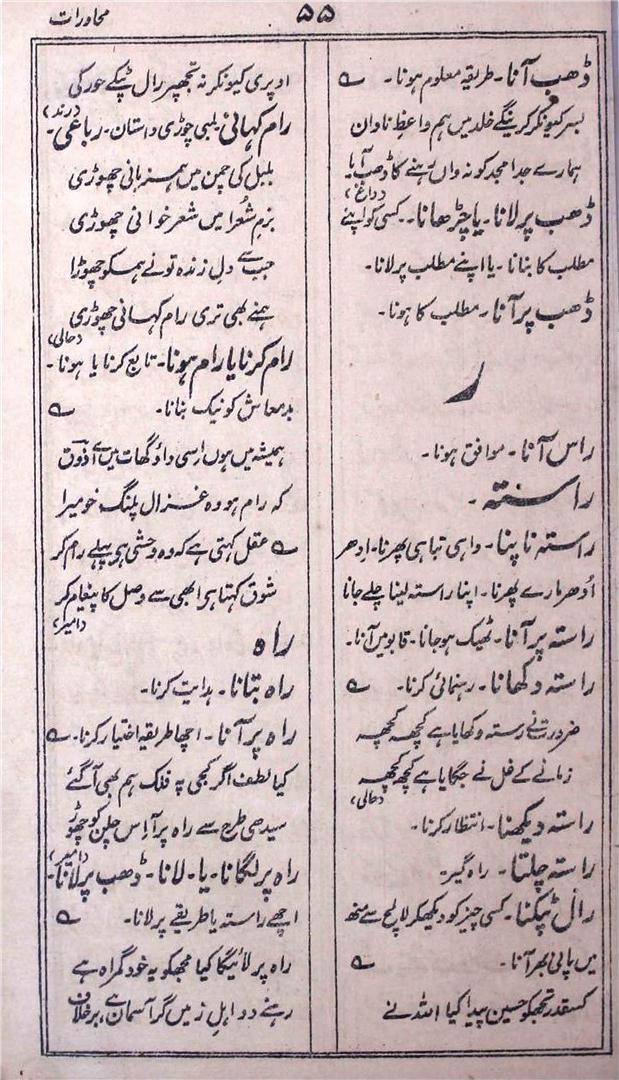 ۵۵
محاورات
ڈھب آنا۔ طریقہ معلوم ہونا۔ ؎
بسر کیونکر کرینگے خلد میں ہم واعظِ ناداں
ہمارے جدِ امجد کو نہ واں رہنے کا ڈھب آیا
(داغ)
ڈھب پر لانا۔ یا چڑھانا۔ کسی کو اپنے
مطلب کا بنانا۔ یا اپنے مطلب پر لانا۔
ڈھب پر آنا۔ مطلب کا ہونا۔
ر
راس آنا۔ موافق ہونا۔
راستہ۔
راستہ ناپنا۔ واہی تباہی پھرنا۔ ادھر
اُدھر مارے پھرنا۔ اپنا راستہ لینا چلے جانا
راستہ پر آنا۔ ٹھیک ہو جانا۔ قابو میں آنا۔
راستہ دکھانا۔ رہنمائی کرنا۔ ؎
ضرورت نے رستہ دکھایا ہے کچھ کچھ
زمانے کے غل نے جگایا ہے کچھ کچھ
(حالی)
راستہ دیکھنا۔ انتظار کرنا۔
راستہ چلتا۔ راہ گیر۔
رال ٹپکنا۔ کسی چیز کو دیکھکر لالچ سے منھ
میں پانی بھر آنا۔ ؎
کسقدر تجھکو حسین پیدا کیا اللہ نے
او پری کیونکر نہ تجھپر رال ٹپکے حور کی
(رند)
رام کہانی۔ لمبی چوڑی داستان۔ رباعی۔
بلبل کی چمن میں ہمزبانی چھوڑی
بزمِ شُعرا میں شعر خوانی چھوڑی
جب سے دلِ زندہ تونے ہمکو چھوڑا
ہمنے بھی تری رام کہانی چھوڑی
(حالی)
رام کرنا یا رام ہونا۔ تابع کرنا یا ہونا۔
بدمعاش کو نیک بنانا۔ ؎
ہمیشہ میں ہوں اسی داؤ گھات میں اے ذوق
کہ رام ہو وہ غزال پلنگ خو میرا
؎ عقل کہتی ہے کہ وہ وحشی ہو پہلے رام کر
شوق کہتا ہی ابھی سے وصل کا پیغام کر
(امیر)
راہ
راہ بتانا۔ ہدایت کرنا۔
راہ پر آنا۔ اچھا طریقہ اختیار کرنا۔ ؎
کیا لطف اگر کجی پہ فلک ہم بھی آ گئے
سیدھی طرح سے راہ پر آ اِس چلن کو چھوڑ
(امیر)
راہ پر لگانا۔ یا۔ لانا۔ ڈھب پر لانا۔
اچھے راستہ یا طریقے پر لانا۔ ؎
راہ پر لائیگا کیا مجھکو یہ خود گمراہ ہے
رہنے دو اہلِ زمیں گر آسماں ہے برخلاف